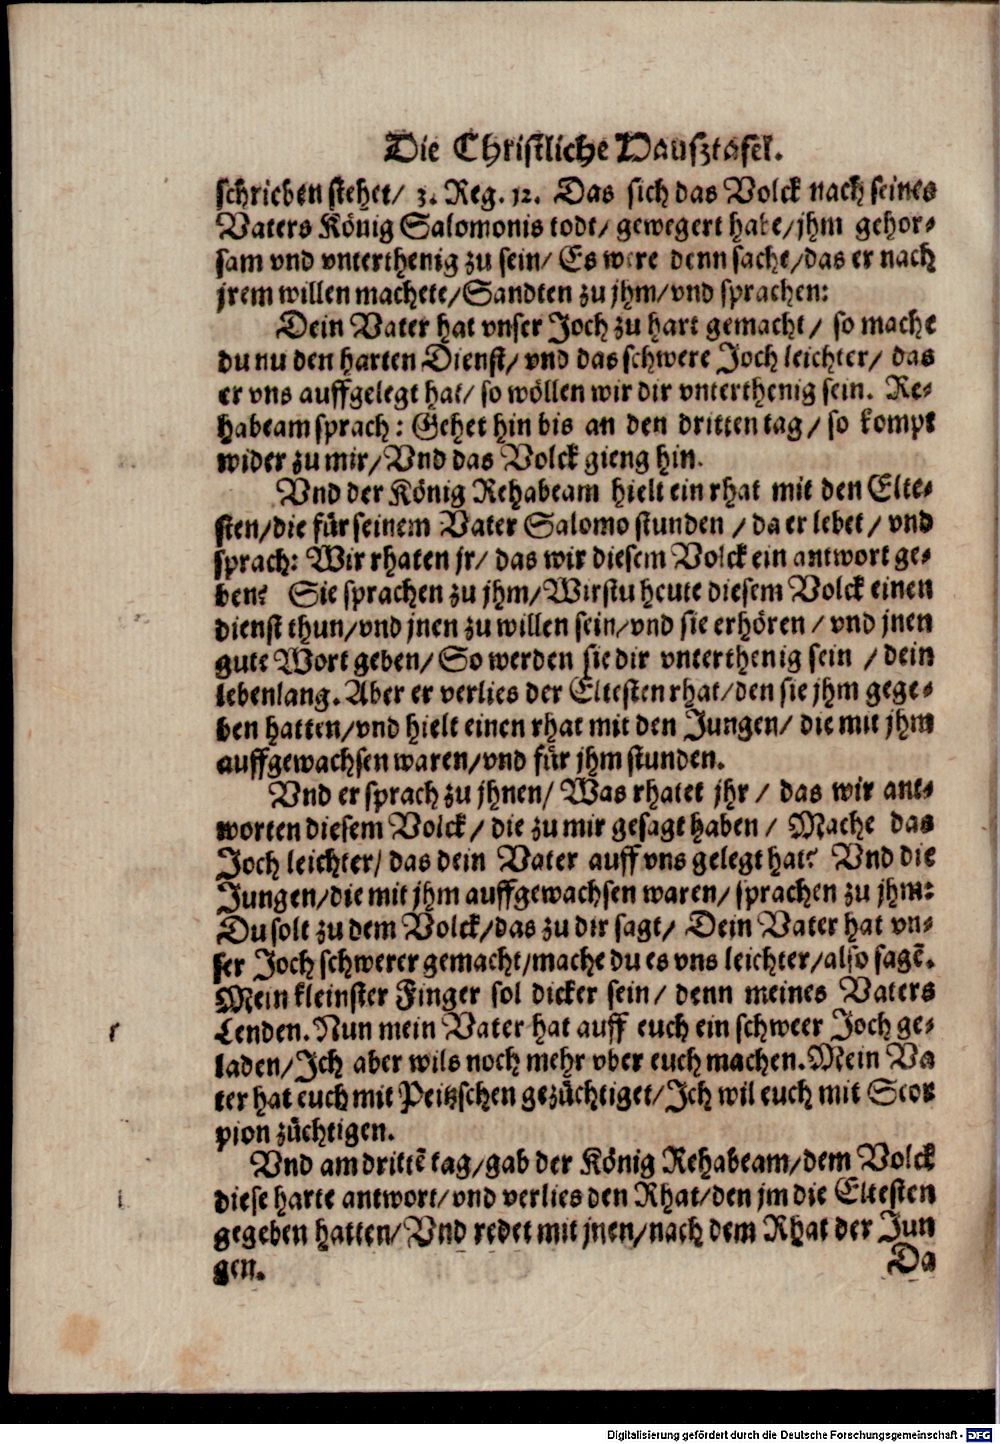 Die Christliche Hausztafel.
schrieben stehet/ 3. Reg. 12. Das sich das Volck nach seines
Vaters König Salomonis todt/ gewegert habe/ jhm gehor-
sam vnd vnterthenig zu sein/ Es were denn sache/ das er nach
jrem willen machete/ Sandten zu jhm/ vnd sprachen:
Dein Vater hat vnser Joch zu hart gemacht/ so mache
du nu den harten Dienst/ vnd das schwere Joch leichter/ das
er vns auffgelegt hat/ so wöllen wir dir vnterthenig sein. Re-
habeam sprach: Gehet hin bis an den dritten tag/ so kompt
wider zu mir/ Vnd das Volck gieng hin.
Vnd der König Rehabeam hielt ein rhat mit den Elte-
sten/ die für seinem Vater Salomo stunden/ da er lebet/ vnd
sprach: Wir rhaten jr/ das wir diesem Volck ein antwort ge-
ben? Sie sprachen zu jhm/ Wirstu heute diesem Volck einen
dienst thun/ vnd jnen zu willen sein/ vnd sie erhören/ vnd jnen
gute Wort geben/ So werden sie dir vnterthenig sein/ dein
lebenlang. Aber er verlies der Eltesten rhat/ den sie jhm gege-
ben hatten/ vnd hielt einen rhat mit den Jungen/ die mit jhm
auffgewachsen waren/ vnd für jhm stunden.
Vnd er sprach zu jhnen/ Was rhatet jhr/ das wir ant-
worten diesem Volck/ die zu mir gesagt haben/ Mache das
Joch leichter/ das dein Vater auff vns gelegt hat? Vnd die
Jungen/ die mit jhm auffgewachsen waren/ sprachen zu jhm:
Du solt zu dem Volck/ das zu dir sagt/ Dein Vater hat vn-
ser Joch schwerer gemacht/ mache du es vns leichter/ also sagē.
Mein kleinster Finger sol dicker sein/ denn meines Vaters
Lenden. Nun mein Vater hat auff euch ein schweer Joch ge-
laden/ Ich aber wils noch mehr vber euch machen. Mein Va
ter hat euch mit Peitzschen gezüchtiget/ Ich wil euch mit Scor
pion züchtigen.
Vnd am drittē tag/ gab der König Rehabeam/ dem Volck
diese harte antwort/ vnd verlies den Rhat/ den jm die Eltesten
gegeben hatten/ Vnd redet mit jnen/ nach dem Rhat der Jun
gen.
Da
Digitalisierung gefördert durch die Deutsche Forschungsgemeinschaft - DFG